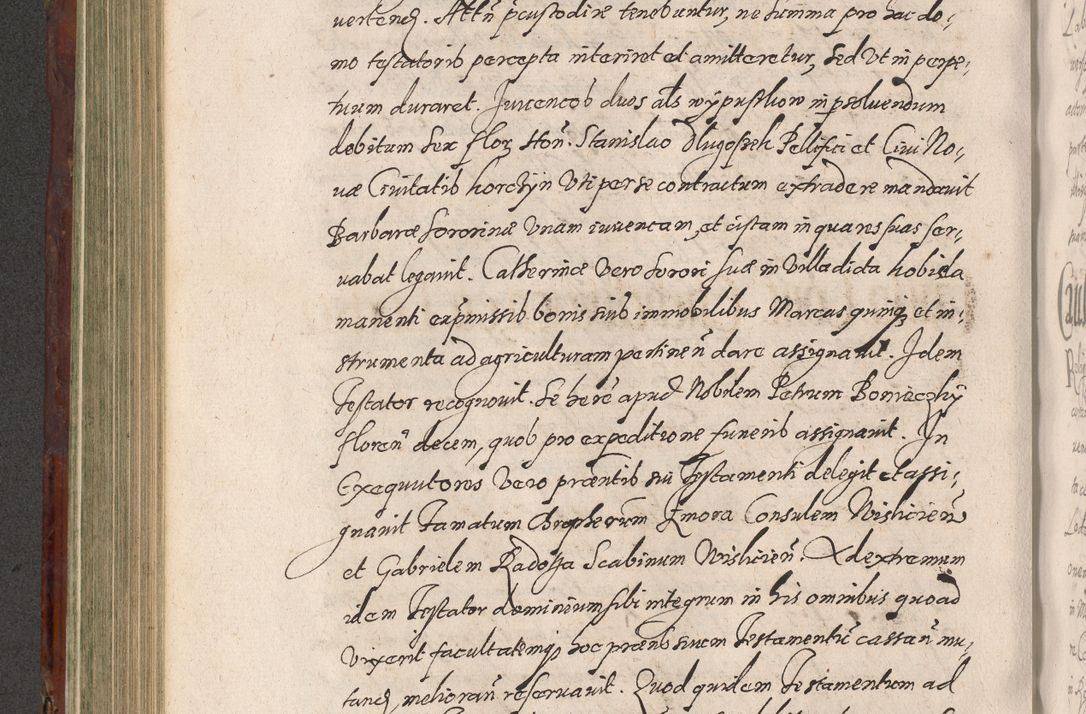 vertend. Attñ pcustodiræ tenebuntur, ne summa pro hac do,
mo testatoris percepta interiret et amitteretur, sed Ut in perpe,
tuum duraret. Juvencos duos als wypustkow in psoluendum
debitum sex flor Honñ. Stanislao Dlugossek Pellifici et Ciui No,
uæ Ciuitatis Korchyn Uti per se contractum extradere mandauit
Barbaræ sororinæ Unam iuuencam, et cistam in qua res suas ser,
uabat legauit. Catherinæ Vero Sorori suæ in Villa dicta
manenti ex pmissis bonis suis immobilibus Marcas quinq et in,
strumenta ad agriculturam pertineñ dare assignauit. Idem
Testator recognouit. Se here apud Nobilem Petrum
floreñ decem, quos pro expeditione funeris assignauit. In
Exequutores Vero præntis sui Testamenti delegit et assi,
gnauit Famatum Chropherum Consulem Wislicieñ
et Gabrielem Radossa Scabinum Wislicieñ. Ad extremum
idem Testator dominium sibi integrum in his omnibus quoad
Vixerit facultatemq, hoc præns suum Testamentũ cassañ mu,
tand, meliorañ reseruauit. Quod quidem Testamentum ad